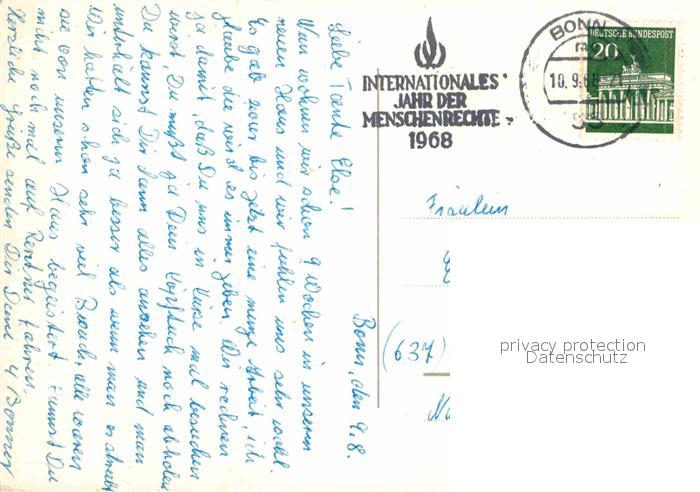 Bonn, den 9.8.
Liebe Tante Else!
Nun wohnen wir schon 9 Wochen in unserm
neuen Haus und wir fühlen uns sehr wohl.
Es gab zwar bis jetzt eine menge Arbeit, ich
glaube die wird es immer geben. Wir rechnen
ja damit, daß Du uns in Kürze mal besuchen
wirst, Du mußt ja Dein Kopftuch noch abholen.
Du kannst Dir dann alles ansehen und man
unterhält sich ja besser als wenn man es schreibt.
Wir hatten schon sehr viel Besuch, alle waren
sie von unserm Haus begeistert. Kannst Du
nicht noch mal auf Rentner fahren.
Herzliche Grüße senden Dir Deine 4 Bonner
INTERNATIONALES
JAHR DER
MENSCHENRECHTE
1968
BONN
10.9.68
53
DEUTSCHE BUNDESPOST
20
Fräulein
(637)
privacy protection
Datenschutz